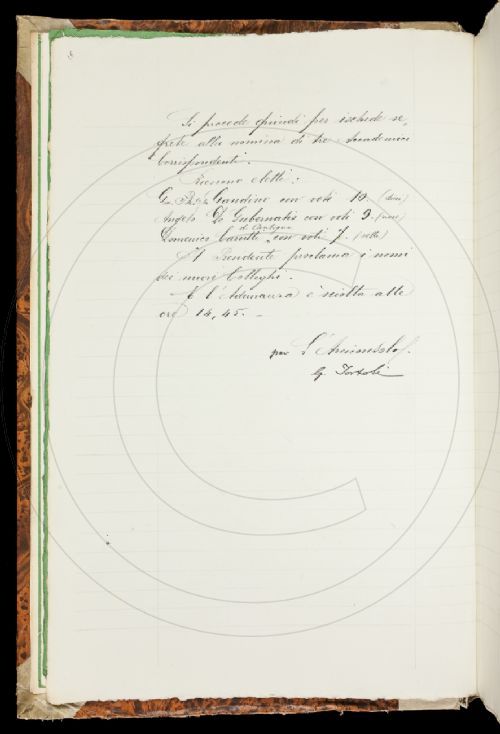 8
Si procede quindi per ischede se
grete alla nomina di tre Accademici
Corrispondenti.
Riescono eletti:
Gandino con voti 10. (dieci)
Angelo De Gubernatis con voti 9. (nove)
di Cantogno
Domenico Carutti con voti 7. (sette)
Il Presidente proclama i nomi
dei nuovi Colleghi.
E l'Adunanza è sciolta alle
ore 14,45. –
per L'Arciconsolo
G. Tortoli